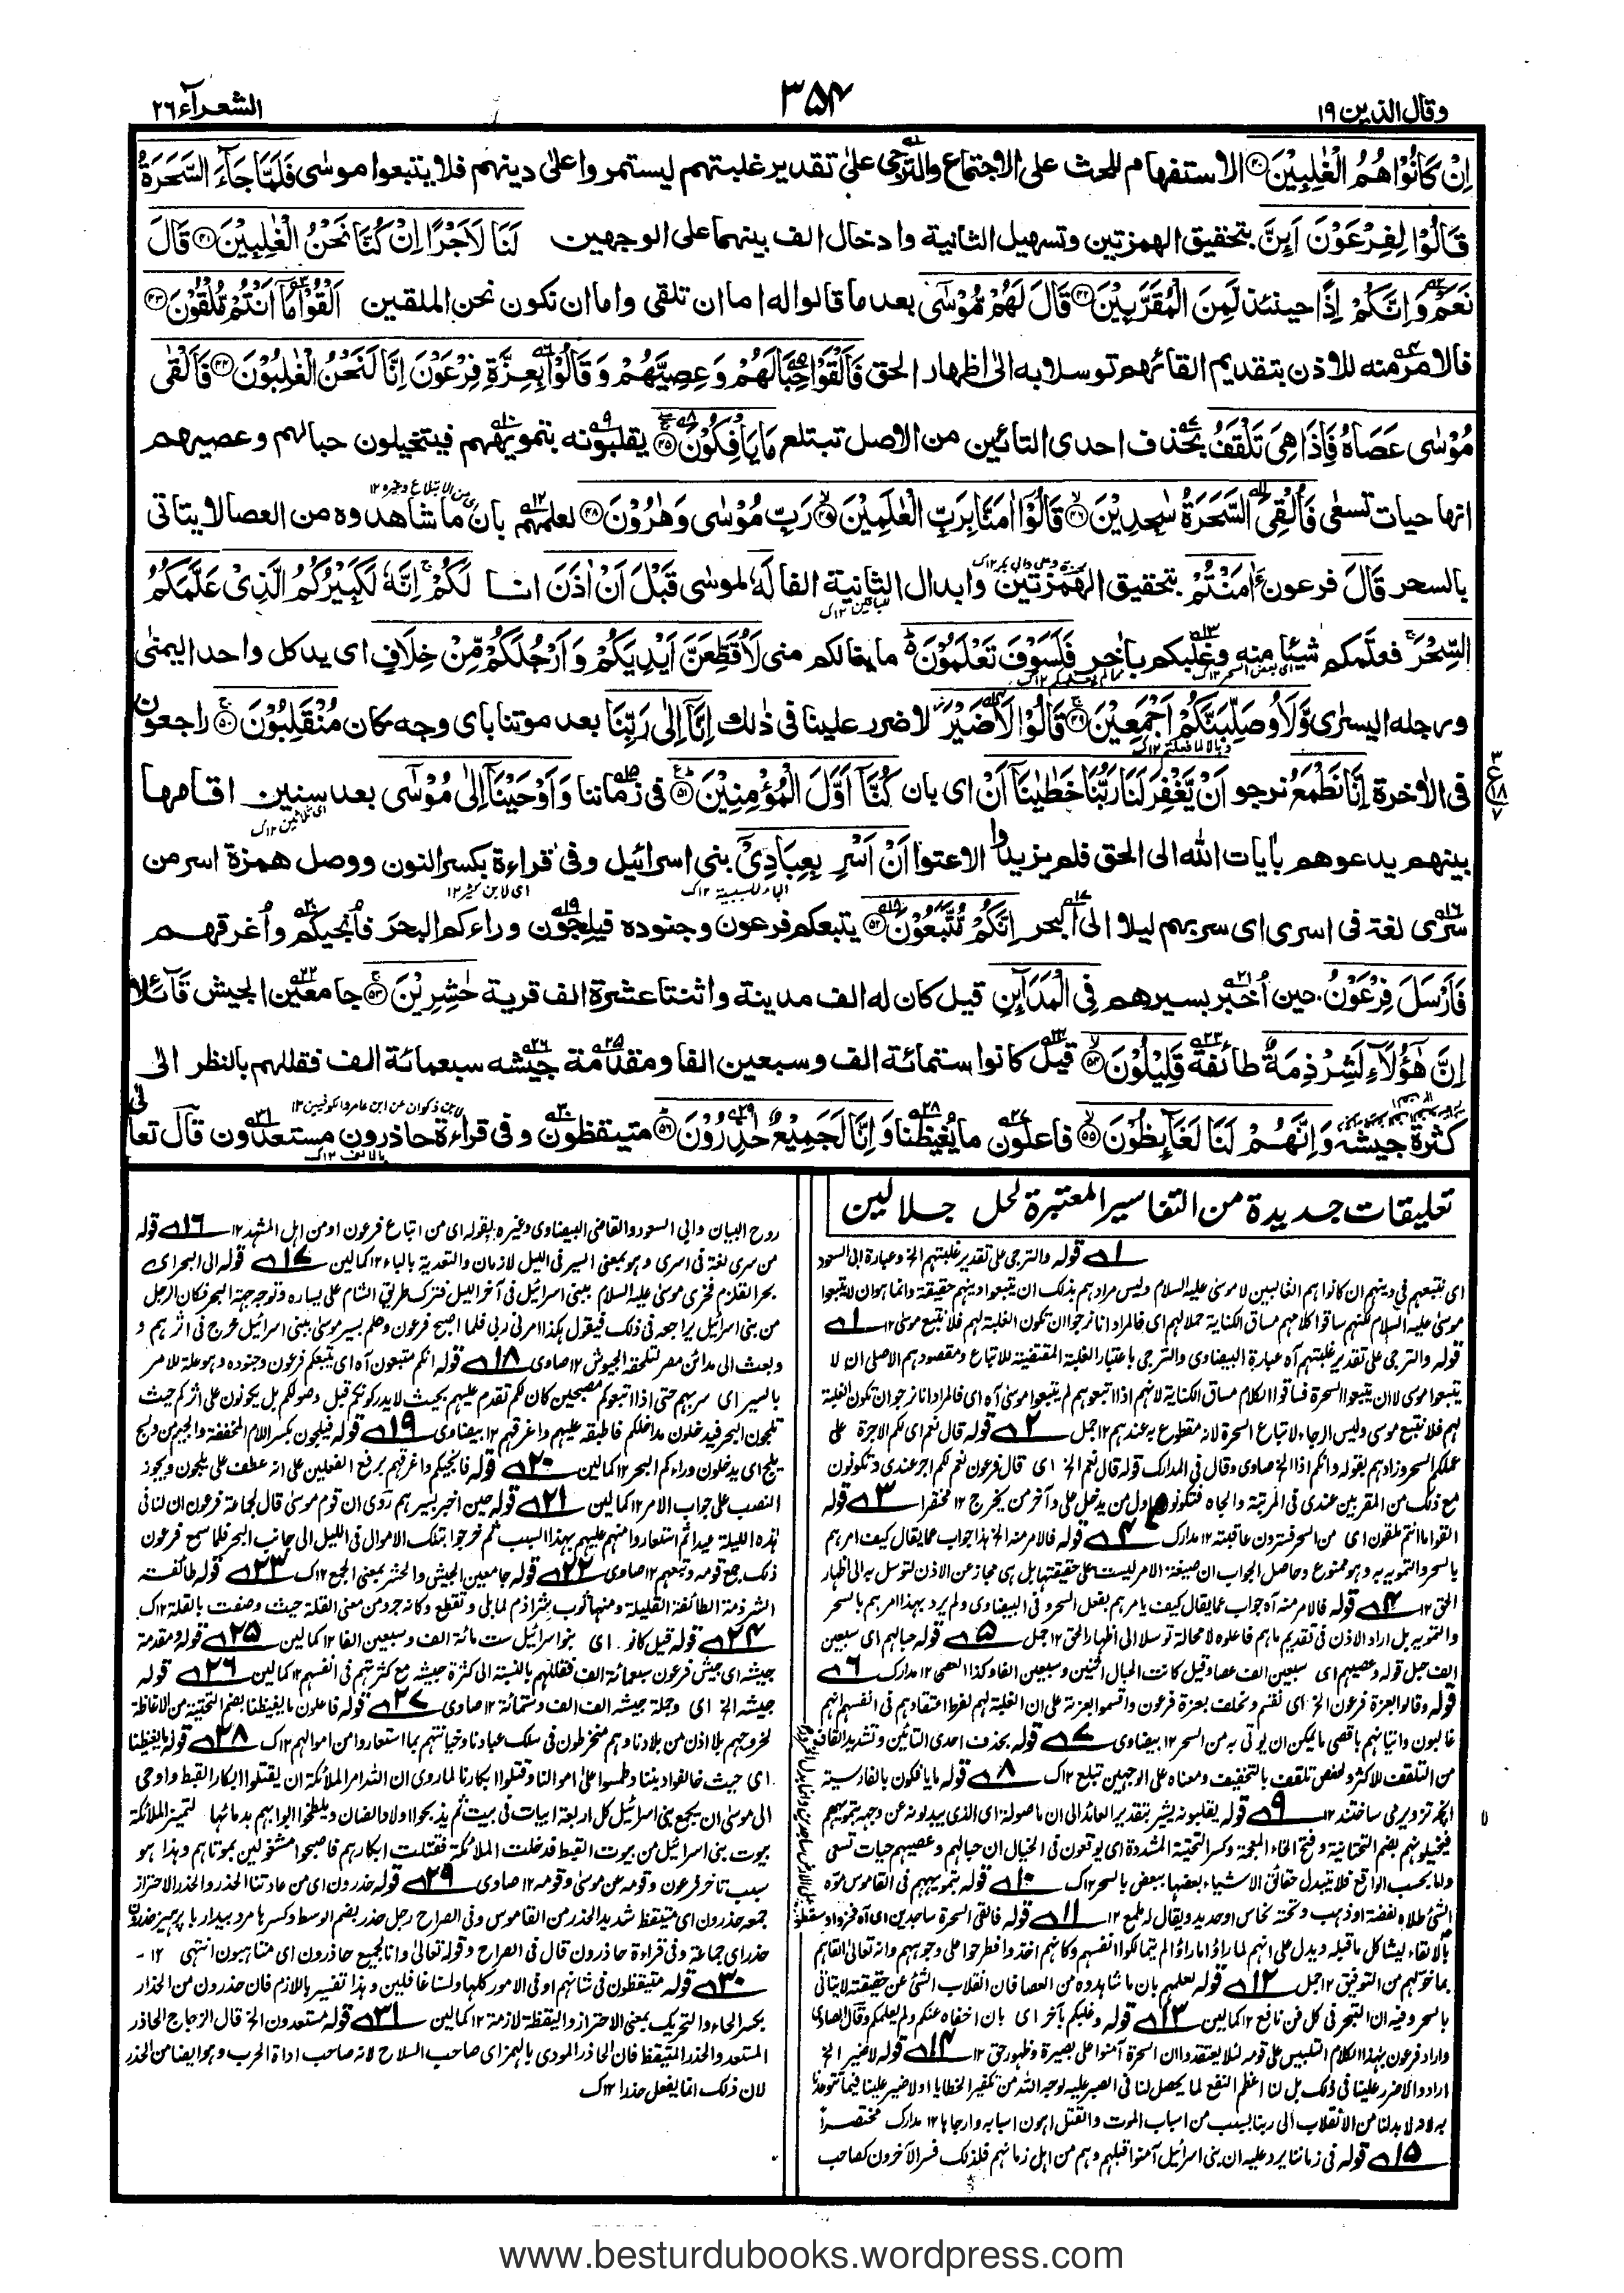 وقال الذين ١٩
٣٥٤
الشعرآء ٢٦
اِنْ كَانُوْا هُمُ الْغٰلِبِيْنَ ۴۰ الاستفهام للحث على الاجتماع والترجى على تقدير غلبتهم ليستمروا على دينهم فلا يتبعوا موسى فَلَمَّا جَآءَ السَّحَرَةُ
قَالُوْا لِفِرْعَوْنَ اَئِنَّ بتحقيق الهمزتين وتسهيل الثانية وادخال الف بينهما على الوجهين لَنَا لَاَجْرًا اِنْ كُنَّا نَحْنُ الْغٰلِبِيْنَ ۴۱ قَالَ
نَعَمْ وَاِنَّكُمْ اِذًا حينئذ لَّمِنَ الْمُقَرَّبِيْنَ ۴۲ قَالَ لَهُمْ مُّوْسٰٓى بعد ما قالوا له اما ان تلقى واما ان نكون نحن الملقين اَلْقُوْا مَآ اَنْتُمْ مُّلْقُوْنَ ۴۳
فالامر منه للاذن بتقديم القائهم توسلا به الى اظهار الحق فَاَلْقَوْا حِبَالَهُمْ وَعِصِيَّهُمْ وَقَالُوْا بِعِزَّةِ فِرْعَوْنَ اِنَّا لَنَحْنُ الْغٰلِبُوْنَ ۴۴ فَاَلْقٰى
مُوْسٰى عَصَاهُ فَاِذَا هِيَ تَلْقَفُ بحذف احدى التائين من الاصل تبتلع مَا يَاْفِكُوْنَ ۴۵ يقلبونه بتمويههم فيتخيلون حبالهم وعصيهم
انها حيات تسعى فَاُلْقِيَ السَّحَرَةُ سٰجِدِيْنَ ۴۶ قَالُوْٓا اٰمَنَّا بِرَبِّ الْعٰلَمِيْنَ ۴۷ رَبِّ مُوْسٰى وَهٰرُوْنَ ۴۸ لعلمهم بان ما شاهدوه من العصا لا يتاتى
بالسحر قَالَ فرعون ءَاٰمَنْتُمْ بتحقيق الهمزتين وابدال الثانية الفا لَهٗ لموسى قَبْلَ اَنْ اٰذَنَ انا لَكُمْ اِنَّهٗ لَكَبِيْرُكُمُ الَّذِيْ عَلَّمَكُمُ
السِّحْرَ فعلمكم شيئا منه وغلبكم بآخر فَلَسَوْفَ تَعْلَمُوْنَ ما ينالكم منى لَاُقَطِّعَنَّ اَيْدِيَكُمْ وَاَرْجُلَكُمْ مِّنْ خِلَافٍ اى يد كل واحد اليمنى
ورجله اليسرى وَّلَاُوصَلِّبَنَّكُمْ اَجْمَعِيْنَ ۴۹ قَالُوْا لَا ضَيْرَ لا ضرر علينا فى ذلك اِنَّآ اِلٰى رَبِّنَا بعد موتنا باى وجه كان مُنْقَلِبُوْنَ ۵۰ راجعون
فى الآخرة اِنَّا نَطْمَعُ نرجو اَنْ يَّغْفِرَ لَنَا رَبُّنَا خَطٰيٰنَآ اَنْ اى بان كُنَّآ اَوَّلَ الْمُؤْمِنِيْنَ ۵۱ فى زماننا وَاَوْحَيْنَآ اِلٰى مُوْسٰٓى بعد سنين اقامها
بينهم يدعوهم بآيات الله الى الحق فلم يزيدوا الا عتوا اَنْ اَسْرِ بِعِبَادِيْٓ بنى اسرائيل وفى قراءة بكسر النون ووصل همزة اسر من
سرى لغة فى اسرى اى سر بهم ليلا الى البحر اِنَّكُمْ مُّتَّبَعُوْنَ ۵۲ يتبعكم فرعون وجنوده فيلجون وراءكم البحر فأنجيكم وأغرقهم
فَاَرْسَلَ فِرْعَوْنُ حين أخبر بسيرهم فِى الْمَدَآئِنِ قيل كان له الف مدينة واثنتا عشرة الف قرية حٰشِرِيْنَ ۵۳ جامعين الجيش قائلا
اِنَّ هٰٓؤُلَآءِ لَشِرْذِمَةٌ طائفة قَلِيْلُوْنَ ۵۴ قيل كانوا ستمائة الف وسبعين الفا ومقدمة جيشه سبعمائة الف فقللهم بالنظر الى
كثرة جيشه وَاِنَّهُمْ لَنَا لَغَآئِظُوْنَ ۵۵ فاعلون ما يغيظنا وَاِنَّا لَجَمِيْعٌ حٰذِرُوْنَ ۵۶ متيقظون وفى قراءة حاذرون مستعدون قال تعالى
تعليقات جديدة من التفاسير المعتبرة لحل جلالين
١ قوله والترجى على تقدير غلبتهم الخ وعبارة ابى السعود
اى نتبعهم فى دينهم ان كانوا هم الغالبين لا موسى عليه السلام وليس مرادهم بذلك ان يتبعوا دينهم حقيقة وانما هو ان لا يتبعوا
موسى عليه السلام لكنهم ساقوا كلامهم مساق الكناية حملا لهم اى فالمراد انا نرجو ان تكون الغلبة لهم فلا نتبع موسى ١٢
قوله والترجى على تقدير غلبتهم آه عبارة البيضاوى والترجى باعتبار الغلبة المقتضية للاتباع ومقصودهم الاصلى ان لا
يتبعوا موسى لا ان يتبعوا السحرة فساقوا الكلام مساق الكناية لانهم اذا اتبعوهم لم يتبعوا موسى آه اى فالمراد انا نرجو ان تكون الغلبة
لهم فلا نتبع موسى وليس الرجاء لاتباع السحرة لانه مقطوع به عندهم ١٢ جمل ٢ قوله قال نعم اى لكم الاجرة على
عملكم السحر وزادهم بقوله وانكم اذا الخ صاوى وقال فى المدارك قوله قال نعم الخ اى قال فرعون نعم لكم اجر عندى وتكونون
مع ذلك من المقربين عندى فى المرتبة والجاه فتكونون اول من يدخل على وآخر من يخرج ١٢ مختصرا ٣ قوله
القوا ما انتم ملقون اى من السحر فسترون عاقبته ١٢ مدارك ٤ قوله فالامر منه الخ هذا جواب عما يقال كيف امرهم
بالسحر والتمويه به وهو ممنوع وحاصل الجواب ان صيغة الامر ليست على حقيقتها بل هى مجاز عن الاذن لتوسل به الى اظهار
الحق ١٢ ٤ قوله فالامر منه آه جواب عما يقال كيف يامرهم بفعل السحر وفى البيضاوى ولم يرد بهذا امرهم بالسحر
والتمويه بل اراد الاذن فى تقديم ما هم فاعلوه لا محالة توسلا الى اظهار الحق ١٢ جمل ٥ قوله حبالهم اى سبعين
الف حبل قوله وعصيهم اى سبعين الف عصا وقيل كانت الحبال اثنين وسبعين الفا وكذا العصى ١٢ مدارك ٦
قوله وقالوا بعزة فرعون الخ اى نقسم ونحلف بعزة فرعون واقسموا بعزته على ان الغلبة لهم لفرط اعتقادهم فى انفسهم انهم
غالبون واتيانهم باقصى ما يمكن ان يوتى به من السحر ١٢ بيضاوى ٧ قوله بحذف احدى التائين وتشديد القاف
من التلقف للاكثر ولحفص تلقف بالتخفيف ومعناه على الوجهين تبلع ١٢ك ٨ قوله ما يافكون بالفارسية
انچه تزوير مى ساختند ١٢ ٩ قوله يقلبونه يشير بتقدير العائد الى ان ما موصولة اى الذى يبدلونه عن وجهه بتمويههم
فيخيلونهم بضم التحتانية وفتح الخاء المعجمة وكسر التحتية المشددة اى يوقعون فى الخيال ان حبالهم وعصيهم حيات تسعى
واما بحسب الواقع فلا يتبدل حقائق الاشياء بعضها ببعض بالسحر ١٢ك ١٠ قوله بتمويههم فى القاموس موّه
الشئ طلاه بفضة او ذهب وتحته نحاس او حديد ويقال له ملمع ١٢ ١١ قوله فالقى السحرة ساجدين اى آه
بالالقاء ليشاكل ما قبله ويدل على انهم لما راوا ما راوا لم يتمالكوا انفسهم وكانهم اخذوا فطرحوا على وجوههم وانه تعالى القاهم
بما خولهم من التوفيق ١٢ جمل ١٢ قوله لعلمهم بان ما شاهدوه من العصا فان انقلاب الشئ عن حقيقته لا يتاتى
بالسحر وفيه ان التبحر فى كل فن نافع ١٢ كمالين ١٣ قوله وغلبكم بآخر اى بان اخفاه عنكم ولم يعلمكم وقال الصاوى
واراد فرعون بهذا الكلام التلبيس على قومه لئلا يعتقدوا ان السحرة آمنوا على بصيرة وظهور حق ١٢ ١٤ قوله لا ضير الخ
ارادوا لا ضرر علينا فى ذلك بل لنا اعظم النفع لما يحصل لنا فى الصبر عليه لوجه الله من تكفير الخطايا او لا ضير علينا فيما تتوعدنا
به لانه لا بد لنا من الانقلاب الى ربنا بسبب من اسباب الموت والقتل اهون اسبابه وارجاها ١٢ مدارك مختصراً
١٥ قوله فى زماننا يرد عليه ان بنى اسرائيل آمنوا قبلهم وهم من اهل زمانهم فلذلك فسر الآخرون كصاحب
روح البيان وابى السعود والقاضى البيضاوى وغيره بقوله اى من اتباع فرعون او من اهل المشهد ١٢ ١٦ قوله
من سرى لغة فى اسرى وهو بمعنى السير فى الليل لازمان والتعدية بالباء ١٢ كمالين ١٧ قوله الى البحر اى
بحر القلزم فخرج موسى عليه السلام ببنى اسرائيل فى آخر الليل فترك طريق الشام على يساره وتوجه جهة البحر فكان الرجل
من بنى اسرائيل يراجعه فى ذلك فيقول هكذا امرنى ربى فلما اصبح فرعون وعلم بسير موسى ببنى اسرائيل خرج فى اثرهم و
وبعث الى مدائن مصر لتلحقه الجيوش ١٢ صاوى ١٨ قوله انكم متبعون آه اى يتبعكم فرعون وجنوده وهو علة للامر
بالسير اى سر بهم حتى اذا اتبعوكم مصبحين كان لكم تقدم عليهم بحيث لا يدركونكم قبل وصولكم بل يكونون على اثركم حيث
تلجون البحر فيدخلون مداخلكم فاطبقه عليهم واغرقهم ١٢ بيضاوى ١٩ قوله فيلجون بكسر اللام المخففة والجيم من ولج
يلج اى يدخلون وراءكم البحر ١٢ كمالين ٢٠ قوله فانجيكم واغرقهم برفع الفعلين على انه عطف على يلجون ويجوز
النصب على جواب الامر ١٢ كمالين ٢١ قوله حين اخبر بسيرهم روى ان قوم موسى قال لجماعة فرعون ان لنا فى
هذه الليلة عيدا ثم استعاروا منهم حليهم بهذا السبب ثم خرجوا بتلك الاموال فى الليل الى جانب البحر فلما سمع فرعون
ذلك جمع قومه وتبعهم ١٢ صاوى ٢٢ قوله جامعين الجيش والحشر بمعنى الجمع ١٢ك ٢٣ قوله طائفة
الشرذمة الطائفة القليلة ومنها ثوب شراذم لما بلى وتقطع وكانه جرد من معنى القلة حيث وصفت بالقلة ١٢ك
٢٤ قوله قيل كانوا اى بنو اسرائيل ست مائة الف وسبعين الفا ١٢ كمالين ٢٥ قوله ومقدمة
جيشه اى جيش فرعون سبعمائة الف فقللهم بالنسبة الى كثرة جيشه مع كثرتهم فى انفسهم ١٢ كمالين ٢٦ قوله
جيشه الخ اى وجملة جيشه الف الف وستمائة ١٢ صاوى ٢٧ قوله فاعلون ما يغيظنا بضم التحتية من الاغاظة
لخروجهم بلا اذن من بلادنا وهم منخرطون فى سلك عبادنا وخيانتهم بما استعاروا من اموالهم ١٢ك ٢٨ قوله ما يغيظنا
اى حيث خالفوا ديننا وطمسوا على اموالنا وقتلوا ابكارنا لما روى ان الله امر الملائكة ان يقتلوا ابكار القبط واوحى
الى موسى ان يجمع بنى اسرائيل كل اربعة ابيات فى بيت ثم يذبحوا اولاد الضان ويلطخوا ابوابهم بدمائها لتميز الملائكة
بيوت بنى اسرائيل من بيوت القبط فدخلت الملائكة فقتلت ابكارهم فاصبحوا مشغولين بموتاهم وهذا هو
سبب تاخر فرعون وقومه عن موسى وقومه ١٢ صاوى ٢٩ قوله حذرون اى من عادتنا الحذر والحذر الاحتراز
جمعه حذرون اى متيقظ شديد الحذر من القاموس وفى الصراح رجل حذر بضم الوسط وكسرها مرد بيدار با پرهيز حذرون
حذراى جماعة وفى قراءة حاذرون قال فى الصراح وقوله تعالى وانا لجميع حاذرون اى متاهبون انتهى ١٢
٣٠ قوله متيقظون فى شانهم او فى الامور كلها ولسنا غافلين وهذا تفسير باللازم فان حذرون من الحذار
بكسر الحاء والتحريك بمعنى الاحتراز واليقظة لازمة ١٢ كمالين ٣١ قوله مستعدون الخ قال الزجاج الحاذر
المستعد والحذر المتيقظ فان الحاذر المودى بالهمز اى صاحب السلاح لانه صاحب اداة الحرب وهو ايضا من الحذر
لان ذلك انما يفعل حذرا ١٢ك
www.besturdubooks.wordpress.com